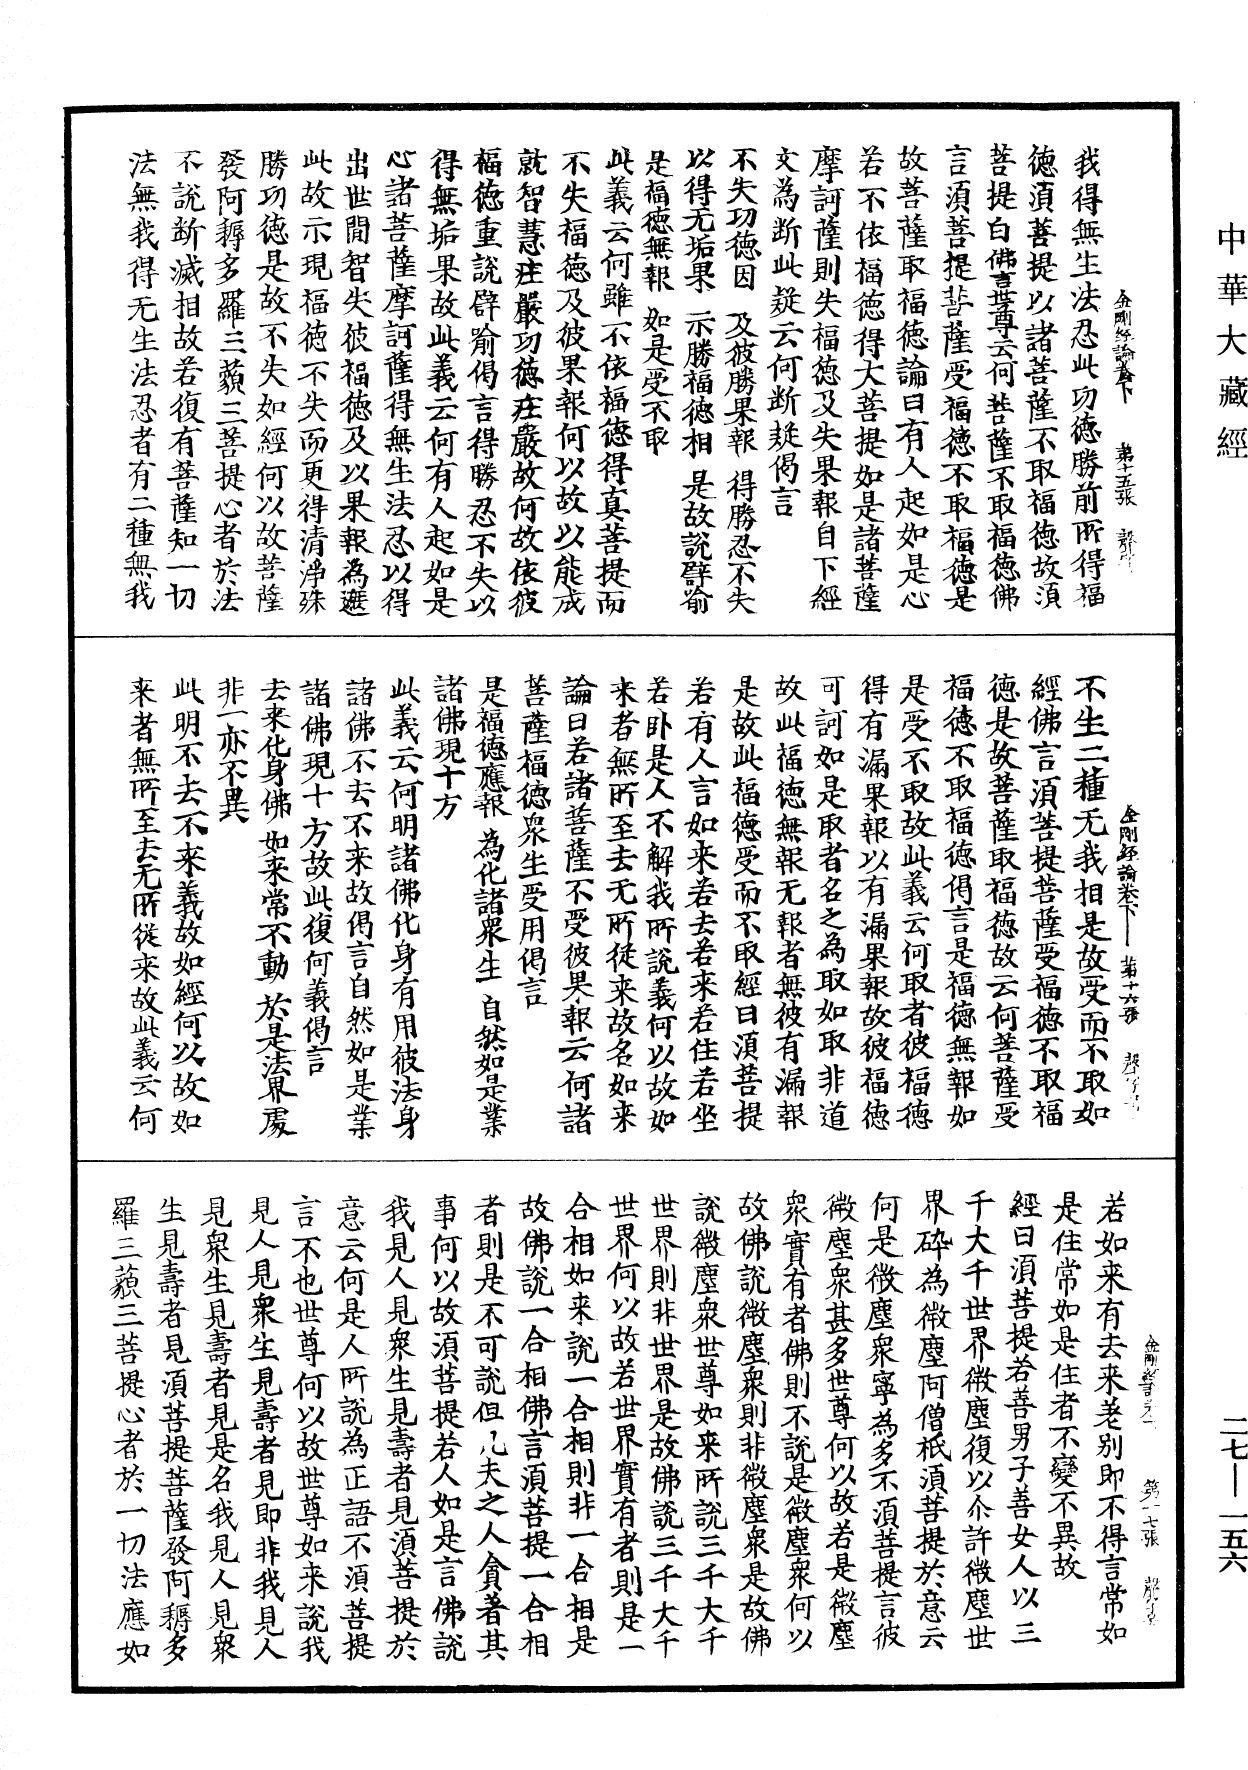 中華大藏經
我得無生法忍此功德勝前所得福
德須菩提以諸菩薩不取福德故須
菩提白佛言世尊云何菩薩不取福德佛
言須菩提菩薩受福德不取福德是
故菩薩取福德論曰有人起如是心
若不依福德得大菩提如是諸菩薩
摩訶薩則失福德及失果報自下經
文為斷此疑云何斷疑偈言
不失功德因　及彼勝果報　得勝忍不失
以得无垢果　示勝福德相　是故說譬喻
是福德無報　如是受不取
此義云何雖不依福德得真菩提而
不失福德及彼果報何以故以能成
就智慧庄嚴功德庄嚴故何故依彼
福德重說譬喻偈言得勝忍不失以
得無垢果故此義云何有人起如是
心諸菩薩摩訶薩得無生法忍以得
出世間智失彼福德及以果報為遮
此故示現福德不失而更得清淨殊
勝功德是故不失如經何以故菩薩
發阿耨多羅三藐三菩提心者於法
不說斷滅相故若復有菩薩知一切
法無我得无生法忍者有二種無我
金剛經論卷下　第十五張
不生二種无我相是故受而不取如
經佛言須菩提菩薩受福德不取福
德是故菩薩取福德故云何菩薩受
福德不取福德偈言是福德無報如
是受不取故此義云何取者彼福德
得有漏果報以有漏果報故彼福德
可訶如是取者名之為取如取非道
故此福德無報无報者無彼有漏報
是故此福德受而不取經曰須菩提
若有人言如來若去若來若住若坐
若卧是人不解我所說義何以故如
来者無所至去无所從来故名如来
論曰若諸菩薩不受彼果報云何諸
菩薩福德衆生受用偈言
是福德應報　為化諸衆生　自然如是業
諸佛現十方
此義云何明諸佛化身有用彼法身
諸佛不去不来故偈言自然如是業
諸佛現十方故此復何義偈言
去来化身佛　如来常不動　於是法界處
非一亦不異
此明不去不来義故如經何以故如
来者無所至去无所從来故此義云何
金剛經論卷下　第十六張
若如来有去来差别即不得言常如
是住常如是住者不變不異故
經曰須菩提若善男子善女人以三
千大千世界微塵復以尒許微塵世
界碎為微塵阿僧祇須菩提於意云
何是微塵衆寧為多不須菩提言彼
微塵衆甚多世尊何以故若是微塵
衆實有者佛則不說是微塵衆何以
故佛說微塵衆則非微塵衆是故佛
說微塵衆世尊如来所說三千大千
世界則非世界是故佛說三千大千
世界何以故若世界實有者則是一
合相如来說一合相則非一合相是
故佛說一合相佛言須菩提一合相
者則是不可說但凡夫之人貪著其
事何以故須菩提若人如是言佛說
我見人見衆生見壽者見須菩提於
意云何是人所說為正語不須菩提
言不也世尊何以故世尊如来說我
見人見衆生見壽者見即非我見人
見衆生見壽者見是名我見人見衆
生見壽者見須菩提菩薩發阿耨多
羅三藐三菩提心者於一切法應如
第十七張
二七—一五六